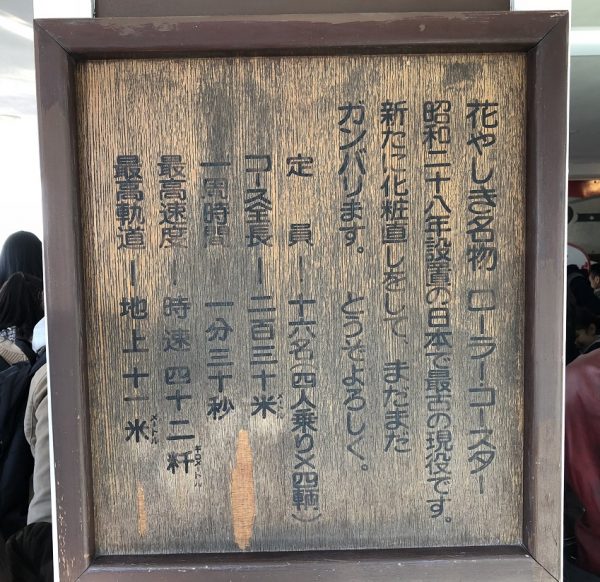 花やしき名物 ローラーコースター
昭和二十八年設置の日本で最古の現役です。
新たに化粧直しをして、まだまだ
ガンバリます。 どうぞよろしく。
定員―十六名(四人乗り×四輌)
コース全長―二百三十米メートル
一周時間 一分三十秒
最高速度―時速四十二粁キロメートル
最高軌道―地上十一米メートル